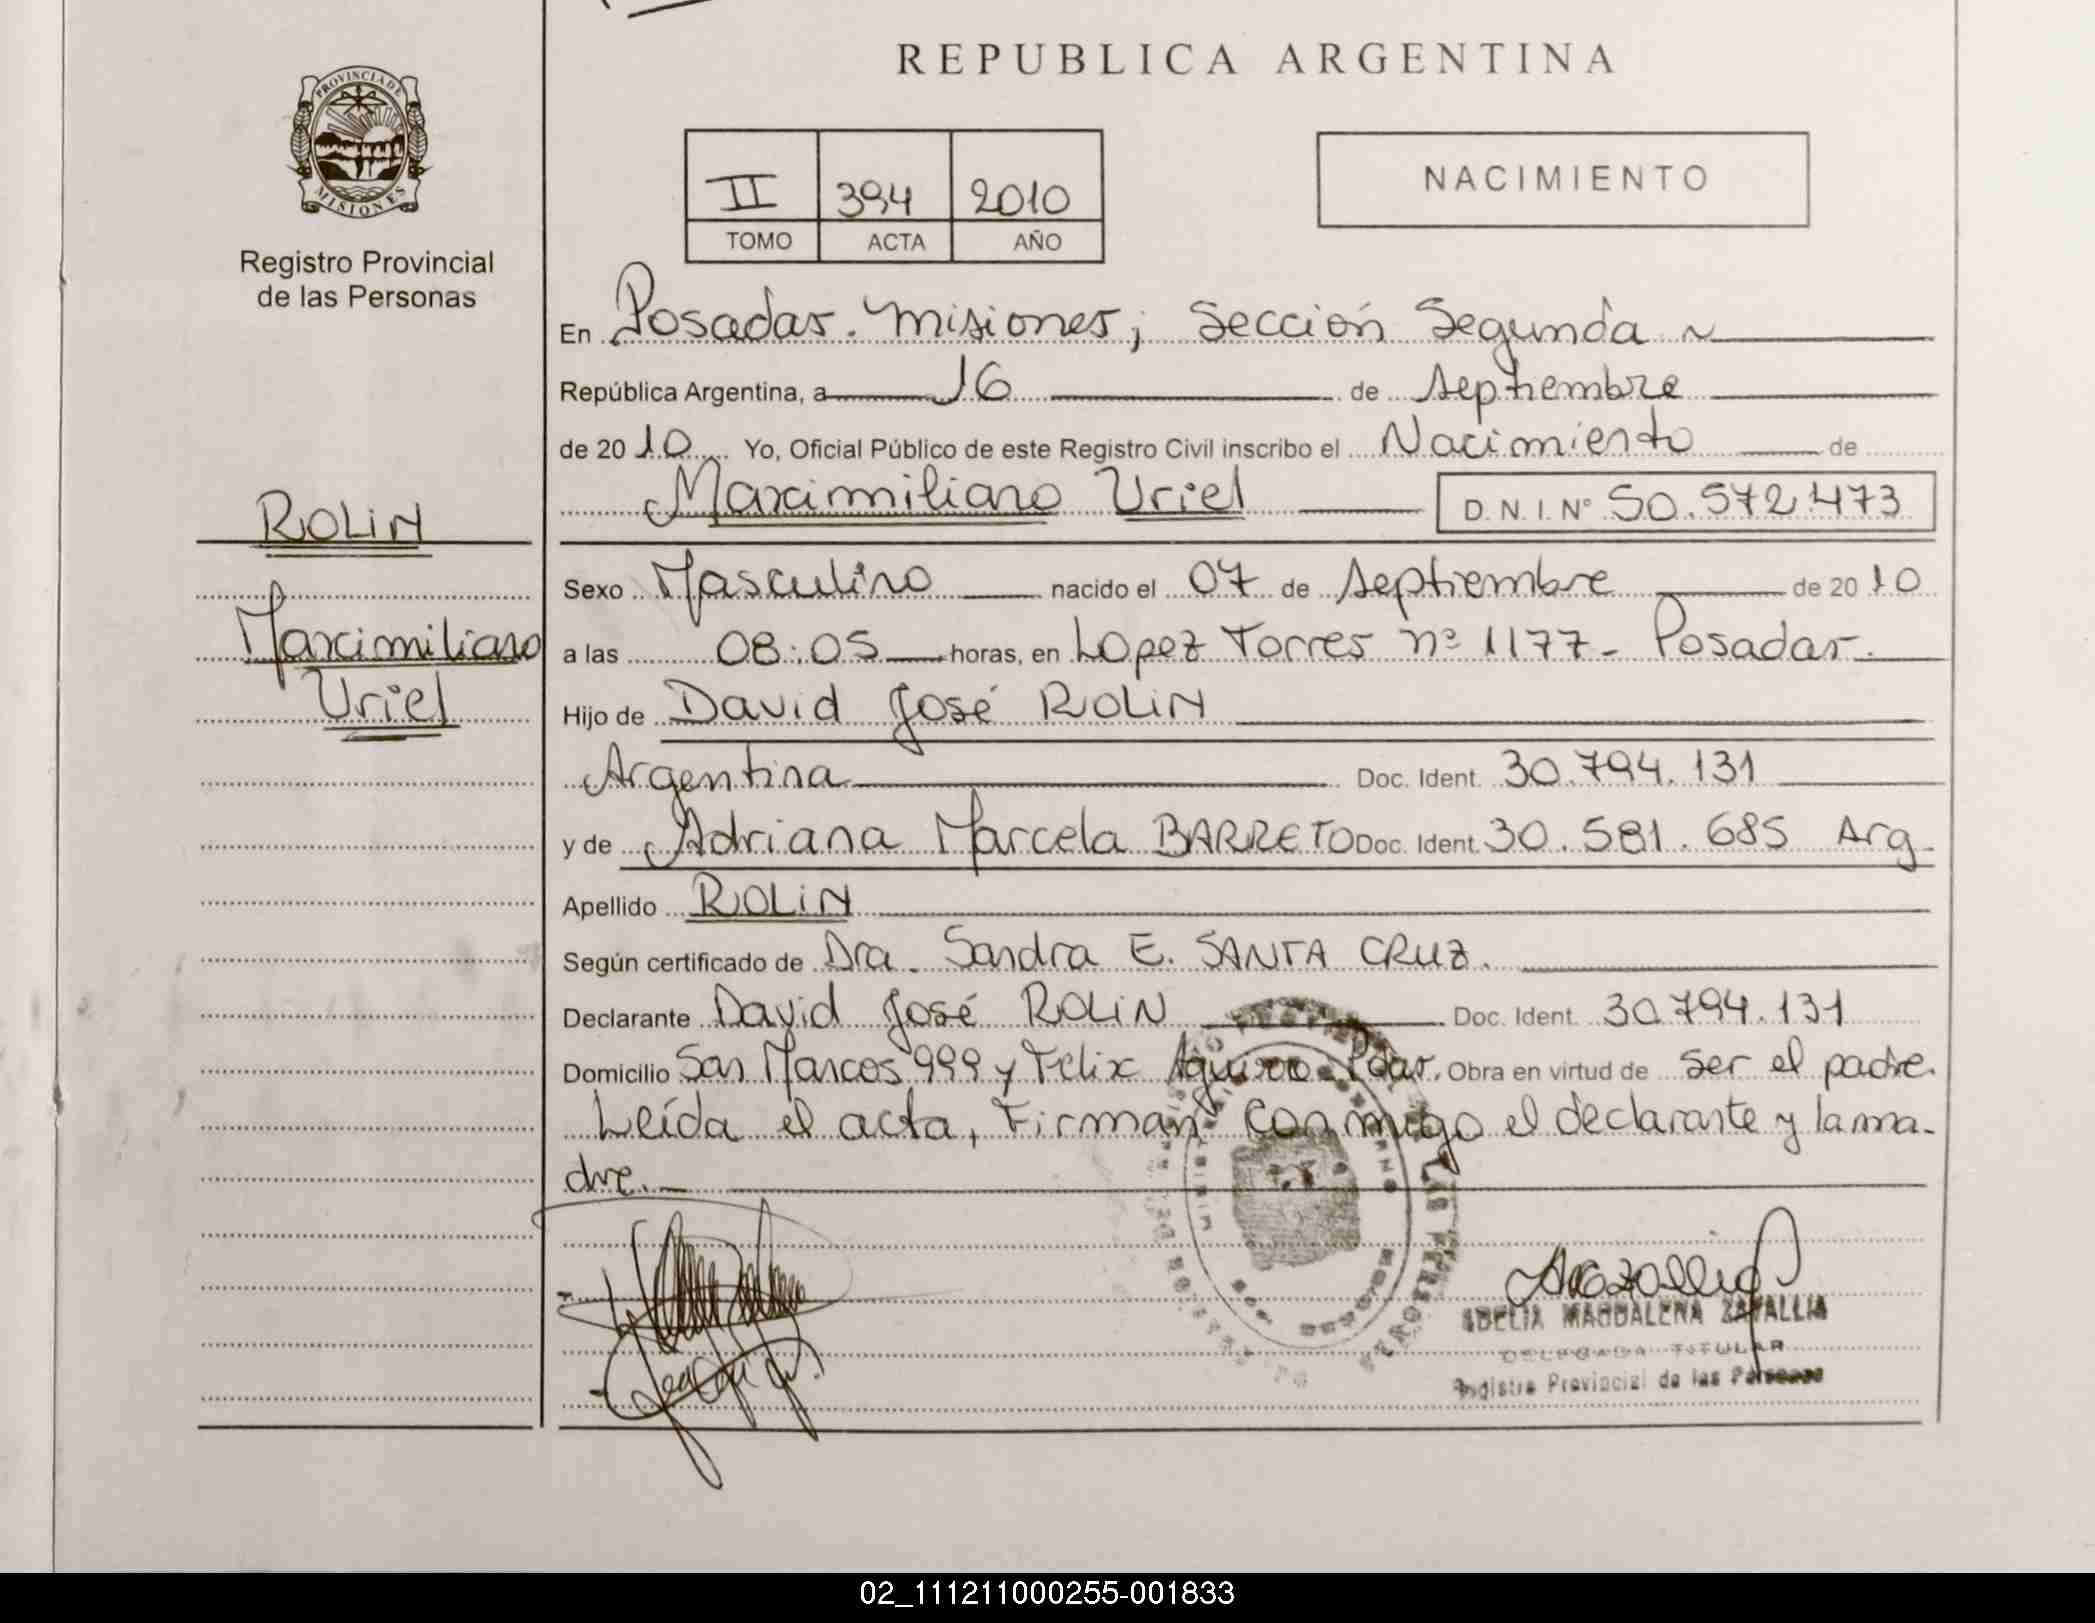 REPUBLICA ARGENTINA
PROVINCIA DE
MISIONES
Registro Provincial
de las Personas
II 394 2010
TOMO ACTA AÑO
NACIMIENTO
En Posadas. Misiones; Sección Segunda
República Argentina, a 16 de septiembre
de 2010 Yo, Oficial Público de este Registro Civil inscribo el Nacimiento de
Maximiliano Uriel D.N.I. Nº 50.572.473
ROLIN
Maximiliano
Uriel
Sexo Masculino nacido el 07 de septiembre de 2010
a las 08:05 horas, en Lopez Torres nº 1177 - Posadas.
Hijo de David José ROLIN
Argentina Doc. Ident. 30.794.131
y de Adriana Marcela BARRETO Doc. Ident. 30.581.685 Arg.
Apellido ROLIN
Según certificado de Dra. Sandra E. SANTA CRUZ.
Declarante David José ROLIN Doc. Ident. 30.794.131
Domicilio San Marcos 999 y Felix Aguirre - Pdas. Obra en virtud de ser el padre.
Leída el acta, Firman conmigo el declarante y la ma-
dre.
ADELIA MAGDALENA ZAPALLIA
DELEGADA TITULAR
Registro Provincial de las Personas
02_111211000255-001833